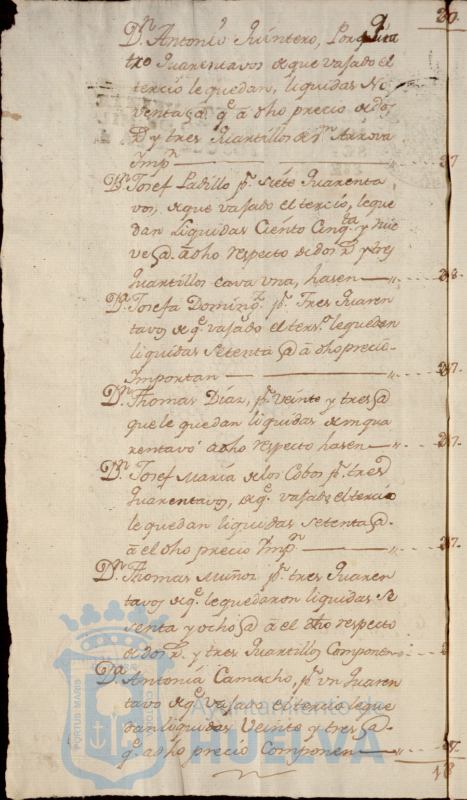 20.
Dn. Antonio Quintero, Por quatro
Quarentavos de que vajado el
tercio le quedan, liquidas No
venta @ qe. à dho precio de dos
Rs. y tres quartillos de
Impn.
Dn. Josef Padillo pr. siete quarenta
vos, de que vajado el tercio, le que
dan Liquidas Ciento Cinqta. y nue
ve @ à dho respecto de dos Rs. y tres
quartillos cava una, hasen
Da. Josefa Doming. pr. Tres quaren
tavos de qe. vajado el terso. le quedan
liquidas Setenta @ à dho precio
Importan
Dn. Thomas Diaz, pr. veinte y tres @
que le quedan liquidas de un qua
rentavo à dho respecto hasen
Dn. Josef Maria de los Cobos pr. tres
Quarentavos, de qe. vajado el tercio
le quedan liquidas Setenta @
à el dho precio Impn.
Dn. Thomas Muñoz pr. tres quaren
tavos de qe. le quedaron liquidas Se
senta y ocho @ à el dho respecto
de dos Rs. y tres quartillos Componen
Da. Antonia Camacho, pr. un quaren
tavo de qe. vajado el tercio le que
dan liquidas Veinte y tres @
qe. à dho precio Componen
PORTUS MARIS
Ayuntamiento de
HUELVA